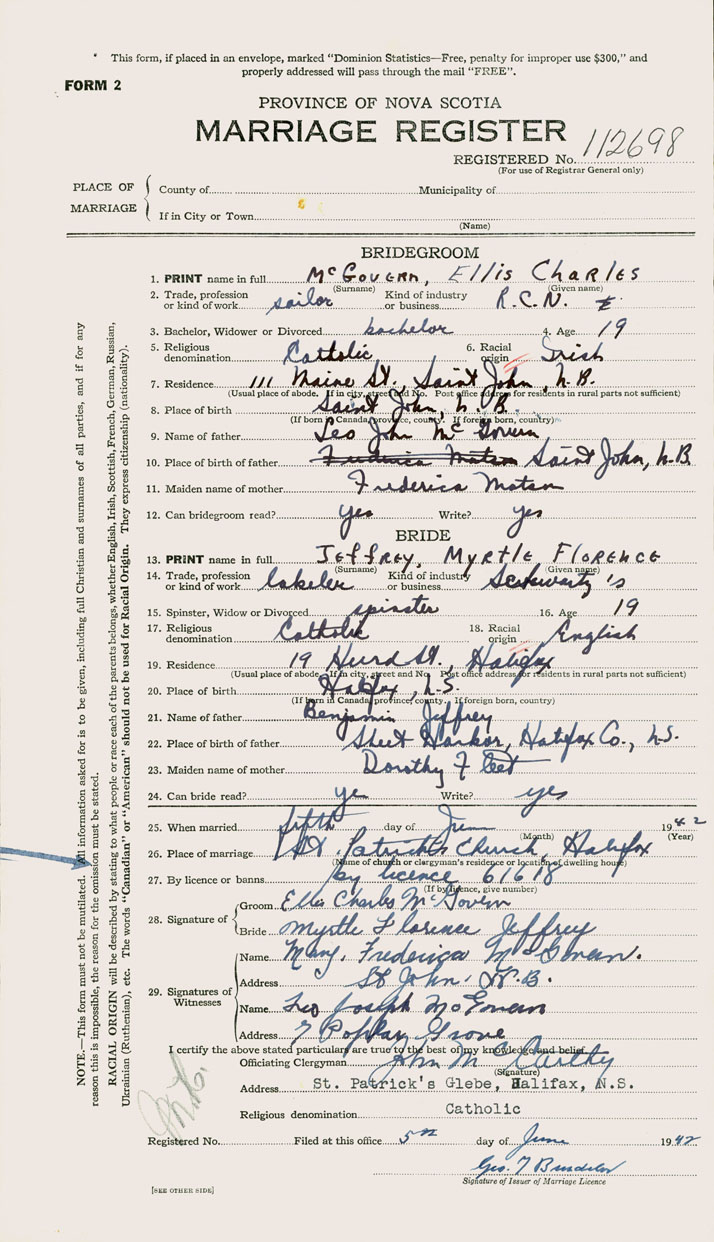 * This form, if placed in an envelope, marked "Dominion Statistics—Free, penalty for improper use $300," and
properly addressed will pass through the mail "FREE".
FORM 2
PROVINCE OF NOVA SCOTIA
MARRIAGE REGISTER
REGISTERED No. 112698
(For use of Registrar General only)
PLACE OF MARRIAGE
County of Municipality of
If in City or Town
(Name)
BRIDEGROOM
1. PRINT name in full McGovern, Ellis Charles
(Surname) (Given name)
2. Trade, profession or kind of work sailor Kind of industry or business R.C.N.
3. Bachelor, Widower or Divorced bachelor 4. Age 19
5. Religious denomination Catholic 6. Racial origin Irish
7. Residence 111 Maine St., Saint John, N.B.
(Usual place of abode. If in city, street and No. Post office address for residents in rural parts not sufficient)
8. Place of birth Saint John, N.B.
(If born in Canada, province, county. If foreign born, country)
9. Name of father Leo John McGovern
10. Place of birth of father Frederica Matson Saint John, N.B
11. Maiden name of mother Frederica Matson
12. Can bridegroom read? yes Write? yes
BRIDE
13. PRINT name in full Jeffrey, Myrtle Florence
(Surname) (Given name)
14. Trade, profession or kind of work labeler Kind of industry or business Schwartz's
15. Spinster, Widow or Divorced spinster 16. Age 19
17. Religious denomination Catholic 18. Racial origin English
19. Residence 19 Hurd St., Halifax
(Usual place of abode. If in city, street and No. Post office address for residents in rural parts not sufficient)
20. Place of birth Halifax, N.S.
(If born in Canada, province, county. If foreign born, country)
21. Name of father Benjamin Jeffrey
22. Place of birth of father Sheet Harbor, Halifax Co., N.S.
23. Maiden name of mother Dorothy
24. Can bride read? yes Write? yes
25. When married fifth day of June 1942
(Month) (Year)
26. Place of marriage St. Patrick's Church, Halifax
(Name of church or clergyman's residence or location of dwelling house)
27. By licence or banns by licence 61618
(If by licence, give number)
28. Signature of
Groom Ellis Charles McGovern
Bride Myrtle Florence Jeffrey
29. Signatures of Witnesses
Name Mary Frederica McGovern.
Address St John N.B.
Name Leo Joseph McGovern
Address 7 Poplar Grove
I certify the above stated particulars are true to the best of my knowledge and belief.
Officiating Clergyman John McCarthy
(Signature)
Address St. Patrick's Glebe, Halifax, N.S.
Religious denomination Catholic
Registered No. Filed at this office 5th day of June 1942
Geo. T
Signature of Issuer of Marriage Licence
[SEE OTHER SIDE]
NOTE.—This form must not be mutilated. All information asked for is to be given, including full Christian and surnames of all parties, and if for any
reason this is impossible, the reason for the omission must be stated.
RACIAL ORIGIN will be described by stating to what people or race each of the parents belongs, whether English, Irish, Scottish, French, German, Russian,
Ukrainian (Ruthenian), etc. The words "Canadian" or "American" should not be used for Racial Origin. They express citizenship (nationality).